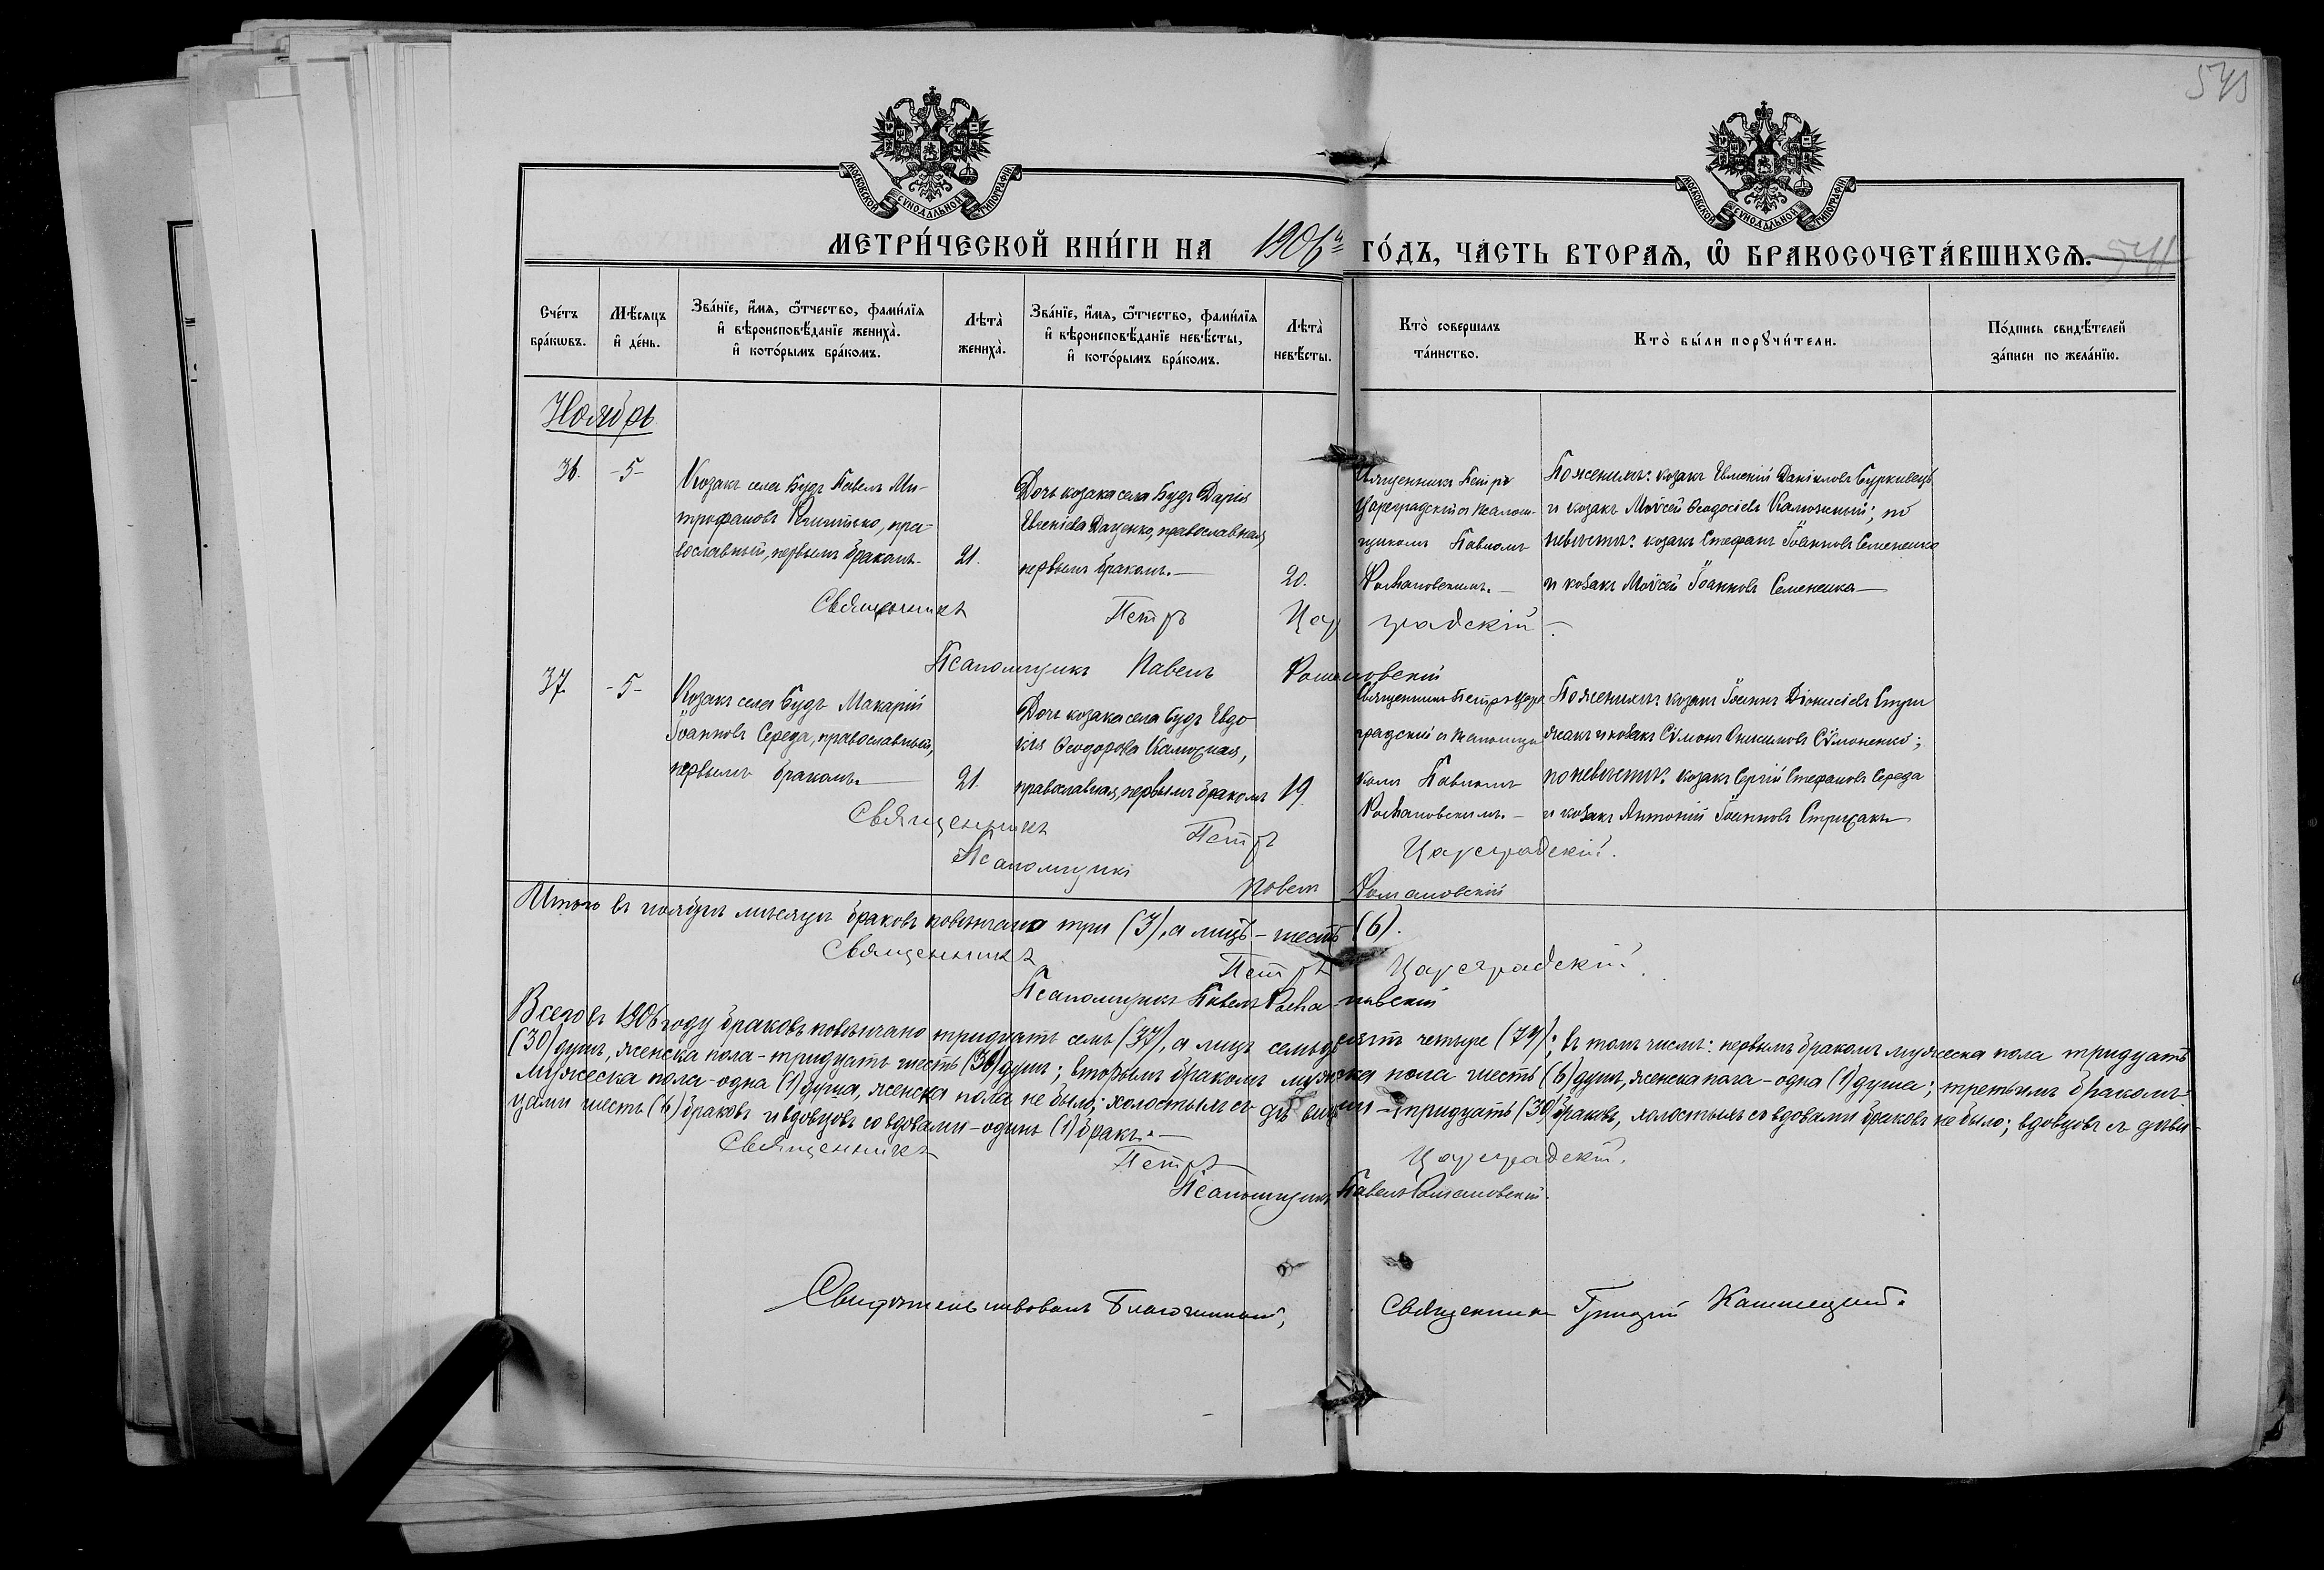 543
МОСКОВСКОЙ СУНОДАЛЬНОЙ ТИПОГРАФІИ
МОСКОВСКОЙ СУНОДАЛЬНОЙ ТИПОГРАФІИ
МЕТРИ́ЧЕСКОЙ КНИ́ГИ НА 1906й ГО́ДЪ, ЧА́СТЬ ВТОРАѦ, Ѡ҆ БРАКОСОЧЕТА́ВШИХСѦ.
Сче́тъ бра́кѡвъ.
Мѣ́сяцъ и҆ де́нь.
Зва́нїе, и҆́мѧ, ѻ҆́тчество, фами́лїѧ и҆ вѣроисповѣ́данїе жениха̀. и҆ кото́рымъ бра́комъ.
Лѣта̀ жениха̀.
Зва́нїе, и҆́мѧ, ѻ҆́тчество, фами́лїѧ и҆ вѣроисповѣ́данїе невѣ́сты, и҆ кото́рымъ бра́комъ.
Лѣта̀ невѣ́сты.
Кто̀ совершалъ та́инство.
Кто̀ бы́ли порꙋчи́тели.
По́дпись свидѣ́телей за́писи по жела́нїю.
Ноябрь
36.
-5-
Козакъ села Будъ Павелъ Ми-
трофановъ пра-
вославный, первымъ бракомъ.
21.
Дочь козака села Будъ Дарія
Даценко, православная,
первымъ бракомъ.—
20.
Священникъ Петръ
Цареградскій съ псалом-
щикомъ Павломъ
Романовскимъ.—
По женихѣ: козакъ Даніиловъ
и козакъ Мойсей Ѳеодосіевъ Калюжный; по
невѣстѣ: козакъ Стефанъ Іоанновъ Семененко
и козакъ Мойсей Іоанновъ Семененко—
Священникъ Петръ Цареградскій.
Псаломщикъ Павелъ Романовскій
37.
-5-
Козакъ села Будъ Макарій
Іоанновъ Середа, православный,
первымъ бракомъ.—
21.
Дочь козака села Будъ Евдо-
кія Ѳеодорова Калюжная,
православная, первымъ бракомъ
19.
Священникъ Петръ Царе-
градскій съ псаломщи-
комъ Павломъ
Романовскимъ.—
По женихѣ: козакъ Іоаннъ Діонисіевъ Стри-
жакъ и козакъ Сѵмонъ Сѵмоненко;
по невѣстѣ: козакъ Сергій Стефановъ Середа
и козакъ Антоній Іоанновъ Стрижакъ
Священникъ Петръ Цареградскій.
Псаломщикъ Павелъ Романовскій
Итого въ ноябрѣ мѣсяцѣ браковъ повѣнчано три (3), а лицъ – шесть (6).
Священникъ Петръ Цареградскій.
Псаломщикъ Павелъ Романовскій
Всего въ 1906 году браковъ повѣнчано тридцать семь (37), а лицъ семьдесятъ четыре (74); въ томъ числѣ: первымъ бракомъ мужеска пола тридцать
(30) душъ, женска пола – тридцать шесть (36) душъ; вторымъ бракомъ мужеска пола шесть (6) душъ, женска пола – одна (1) душа; третьимъ бракомъ
мужеска пола – одна (1) душа, женска пола не было; холостымъ съ дѣвицами – тридцать (30) браковъ, холостыхъ съ вдовами браковъ не было; вдовцовъ съ дѣви-
цами шесть (6) браковъ и вдовцовъ со вдовами – одинъ (1) бракъ.—
Священникъ Петръ Цареградскій.
Псаломщикъ Павелъ Романовскій.
Свидѣтельствовалъ Благочинный, Священникъ